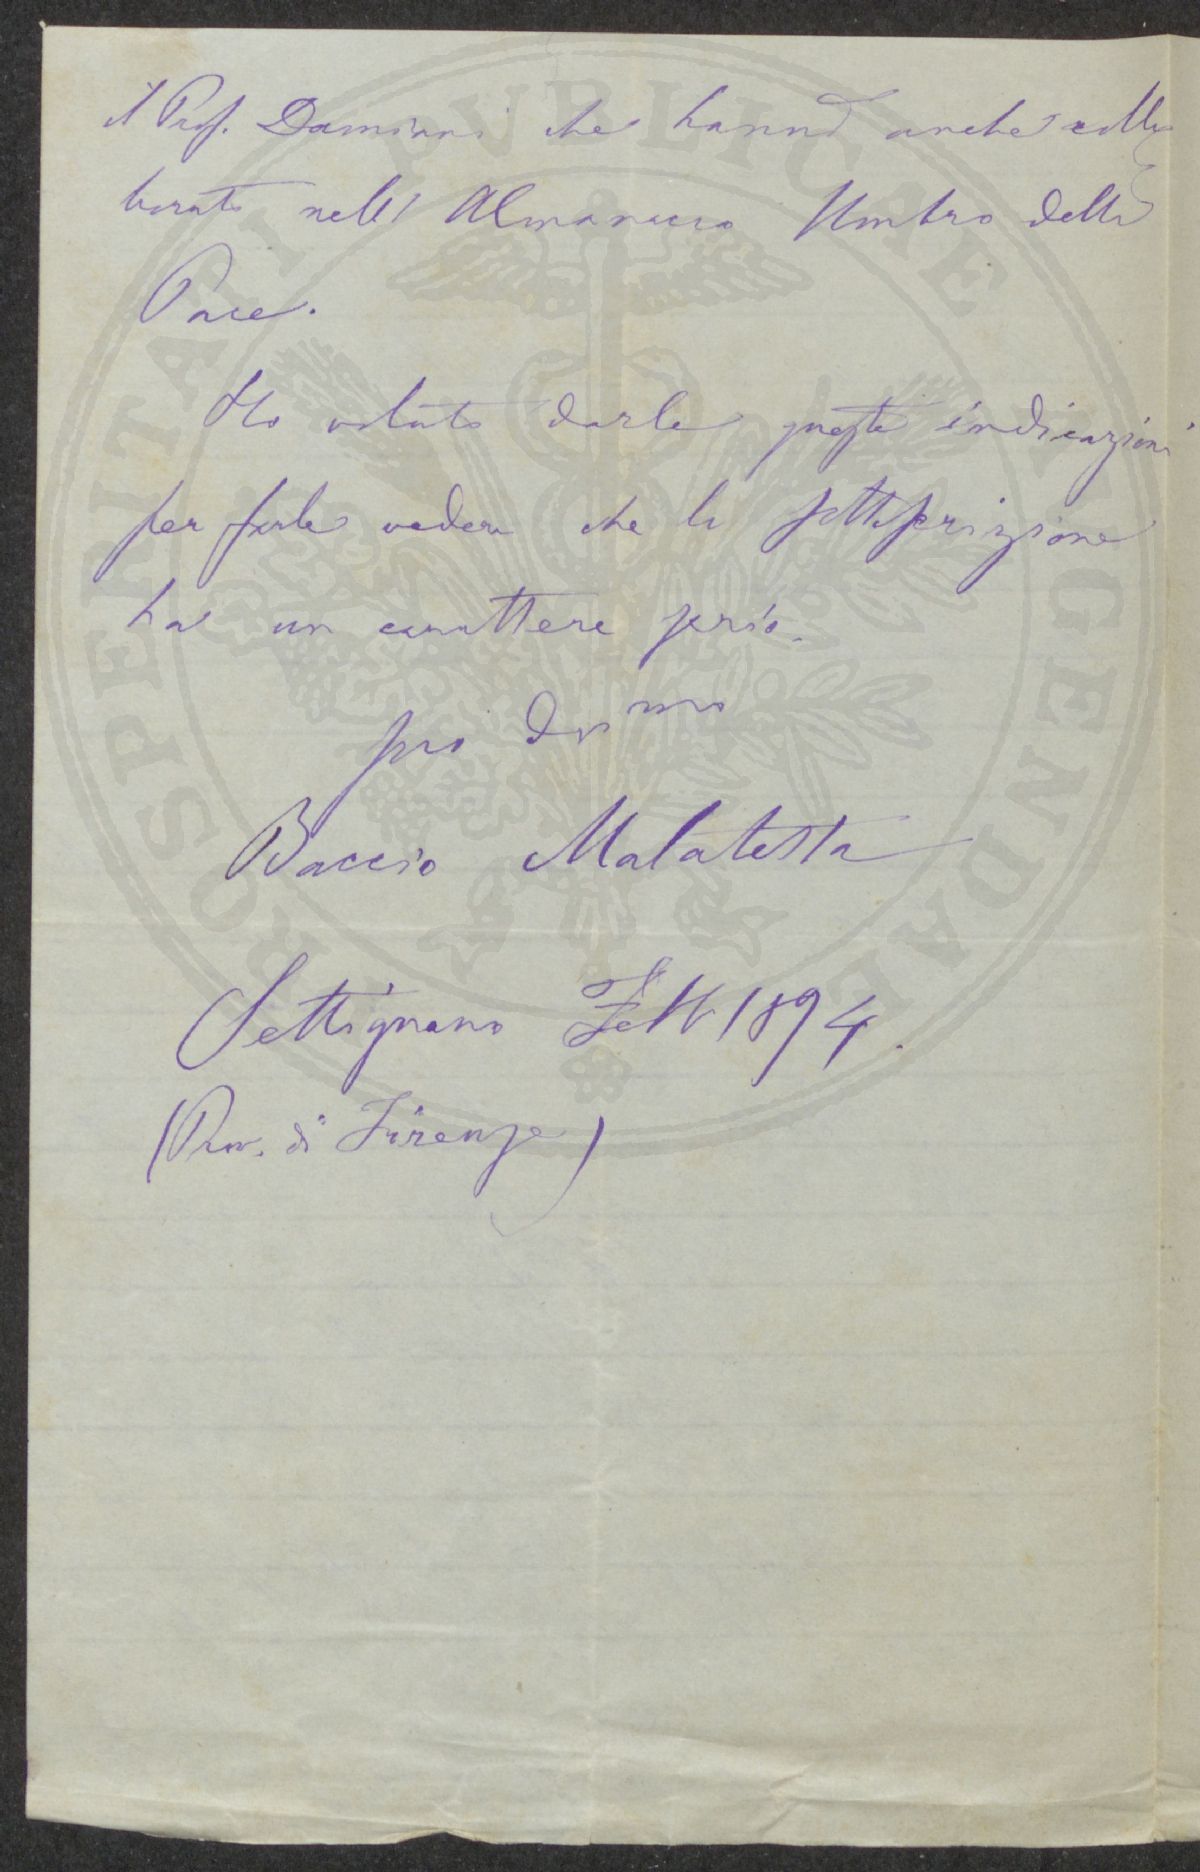 il Prof. Damiani che hanno anche colla
borato nell'Almanacco Umbro della
Pace.
Ho voluto darle queste indicazioni
per farle vedere che la sottoscrizione
ha un carattere serio.
suo Dv mo
Baccio Malatesta
Settignano Febb 1894.
(Prov. di Firenze)